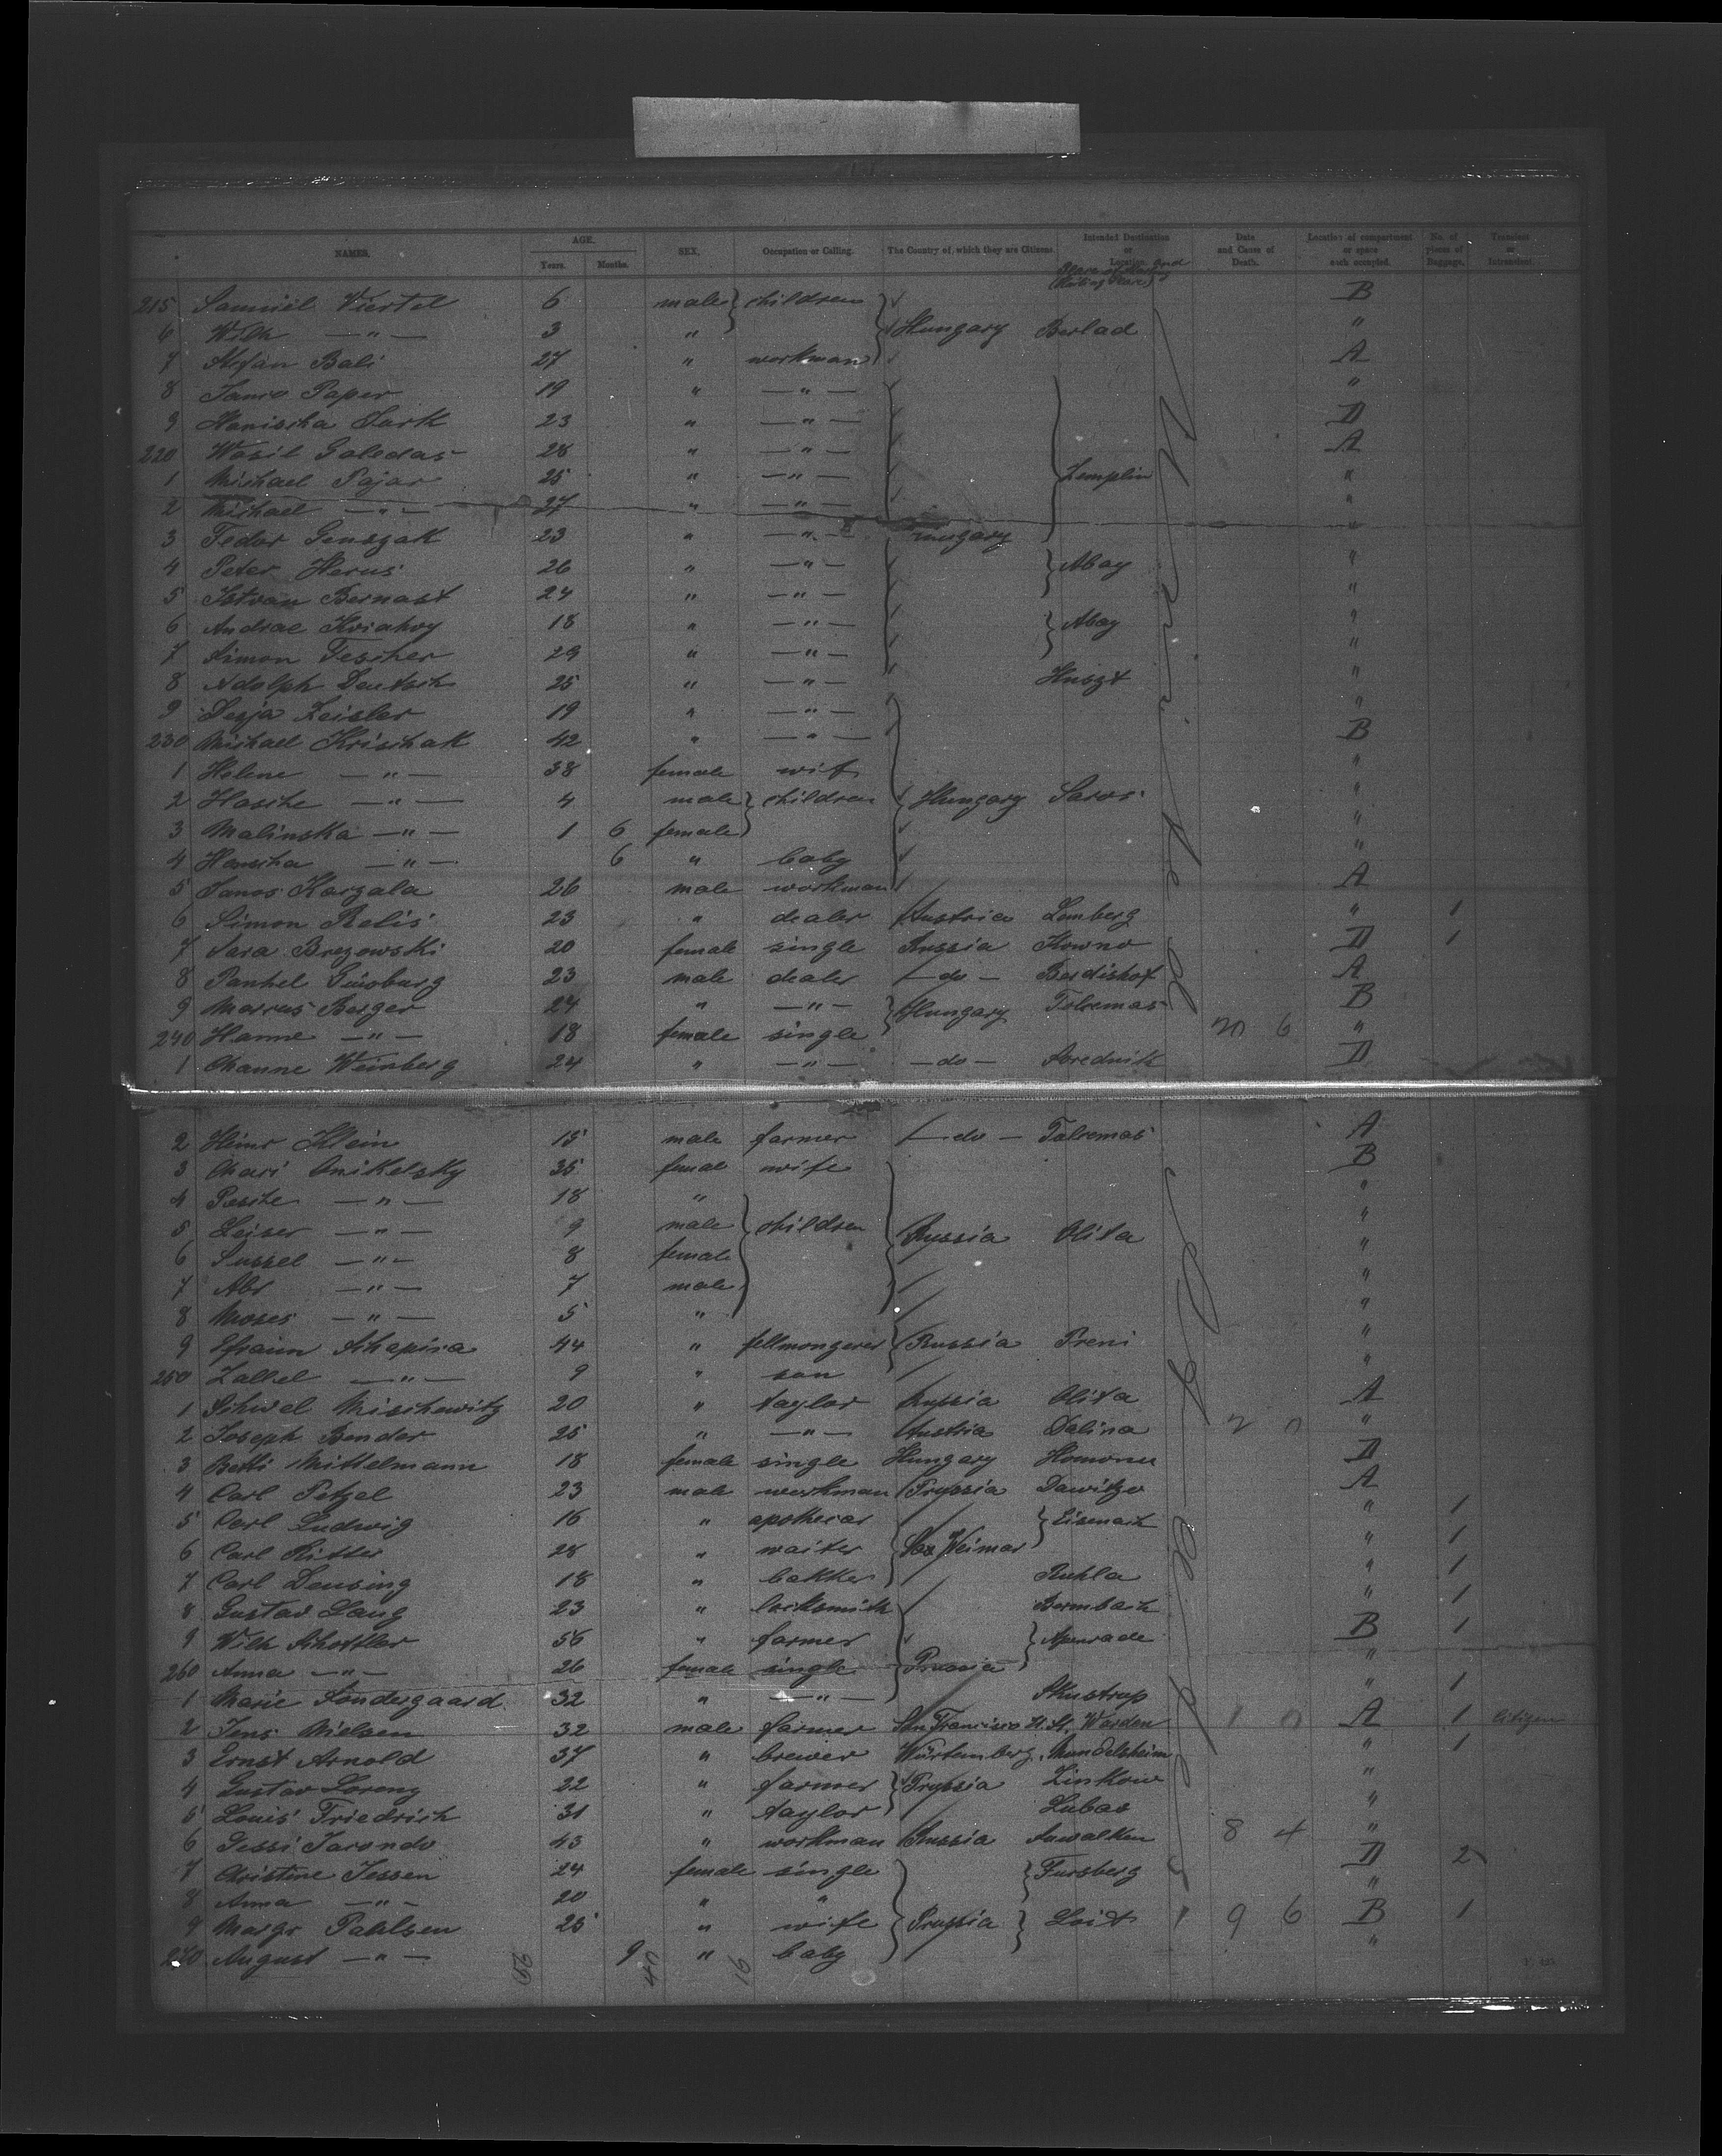 NAMES. AGE. Years. Months. SEX. Occupation or Calling. The Country of which they are Citizens. Intended Destination or Location. and Place of Starting (Starting Place) Date and Cause of Death. Location of compartment or space each occupied. No. of pieces of Baggage. Transient or Intransient.
215 Samuel Viertel 6 male } children B
6 Wilh — " — 3 " Hungary Berlad "
7 Stefan Bali 27 " workman A
8 Janco Paper 19 " — " — "
9 Hanischa Surk 23 " — " — D
220 Wasil Galedas 28 " — " — A
1 Michael Pajar 25 " — " — } Zemplin "
2 Michael — " — 27 " — " — "
3 Fedor Genszak 23 " — " — Hungary "
4 Peter Herus 26 " — " — } Abay "
5 Istvan Bernast 24 " — " — "
6 Andrae Hriahoy 18 " — " — } Abay "
7 Simon Tescher 29 " — " — "
8 Adolph Deutsch 25 " — " — Huszt "
9 Dezja Zeisler 19 " — " — "
230 Michael Krischak 42 " — " — B
1 Helene — " — 38 female wif "
2 Hasche — " — 4 male } children Hungary Saros "
3 Malinska — " — 1 6 female "
4 Hanscha — " — 6 " baby "
5 Janos Kargala 26 male workman A
6 Simon Relis 23 " dealer Austria Lemberg " 1
7 Sara Brezowski 20 female single Russia Kowno D 1
8 Panhel Ginsburg 23 male dealer — do — Berdishof A
9 Marcus Berger 24 " — " — } Hungary Tolremas B
240 Hanne — " — 18 female single 20 6 "
1 Channe Weinberg 24 " — " — — do — Srednik D
2 Heinr Klein 15 male farmer — do — Talremas A
3 Chari Mikelsky 35 femal wife B
4 Pesche — " — 18 " "
5 Leiser — " — 9 male } children Russia Olita "
6 Sussel — " — 8 female "
7 Abr — " — 7 male "
8 Moses — " — 5 " "
9 Efraim Schapira 44 " fellmongerer Russia Preni "
250 Zallel — " — 9 " son "
1 Schwel Mischewitz 20 " taylor Russia Olita A
2 Joseph Bender 25 " — " — Austria Dalina 2 0 "
3 Betti Mittelmann 18 female single Hungary Homonu D
4 Carl Petzel 23 male workman Prussia Dawitzo A
5 Carl Ludwig 16 " apothecar } Eisenach " 1
6 Carl Ritter 28 " waiter Sax Weimar " 1
7 Carl Deusing 18 " bakker Ruhla " 1
8 Gustav Lang 23 " locksmith Bermbach " 1
9 Wilh Schottler 56 " farmer } Apenrade B 1
260 Anna — " — 26 female single Prussia "
1 Marie Söndergaard 32 " — " — Skustrup " 1
2 Jens Nielsen 32 male farmer San Francisco U. St. Warden 1 0 A 1 Citizen
3 Ernst Arnold 37 " brewer Würtemberg Mundelsheim " 1
4 Gustav Lorenz 22 " farmer } Prussia Zinkow "
5 Louis Friedrich 31 " taylor Lubas "
6 Jessi Jarondo 43 " workman Russia Suwalken 8 4 "
7 Christine Jessen 24 female single } Fursberg D 2
8 Anna — " — 20 " " "
9 Margr Pahlsen 25 " wife Prussia } Loit 1 9 6 B 1
270 August — " — 9 " baby "
56 40 16